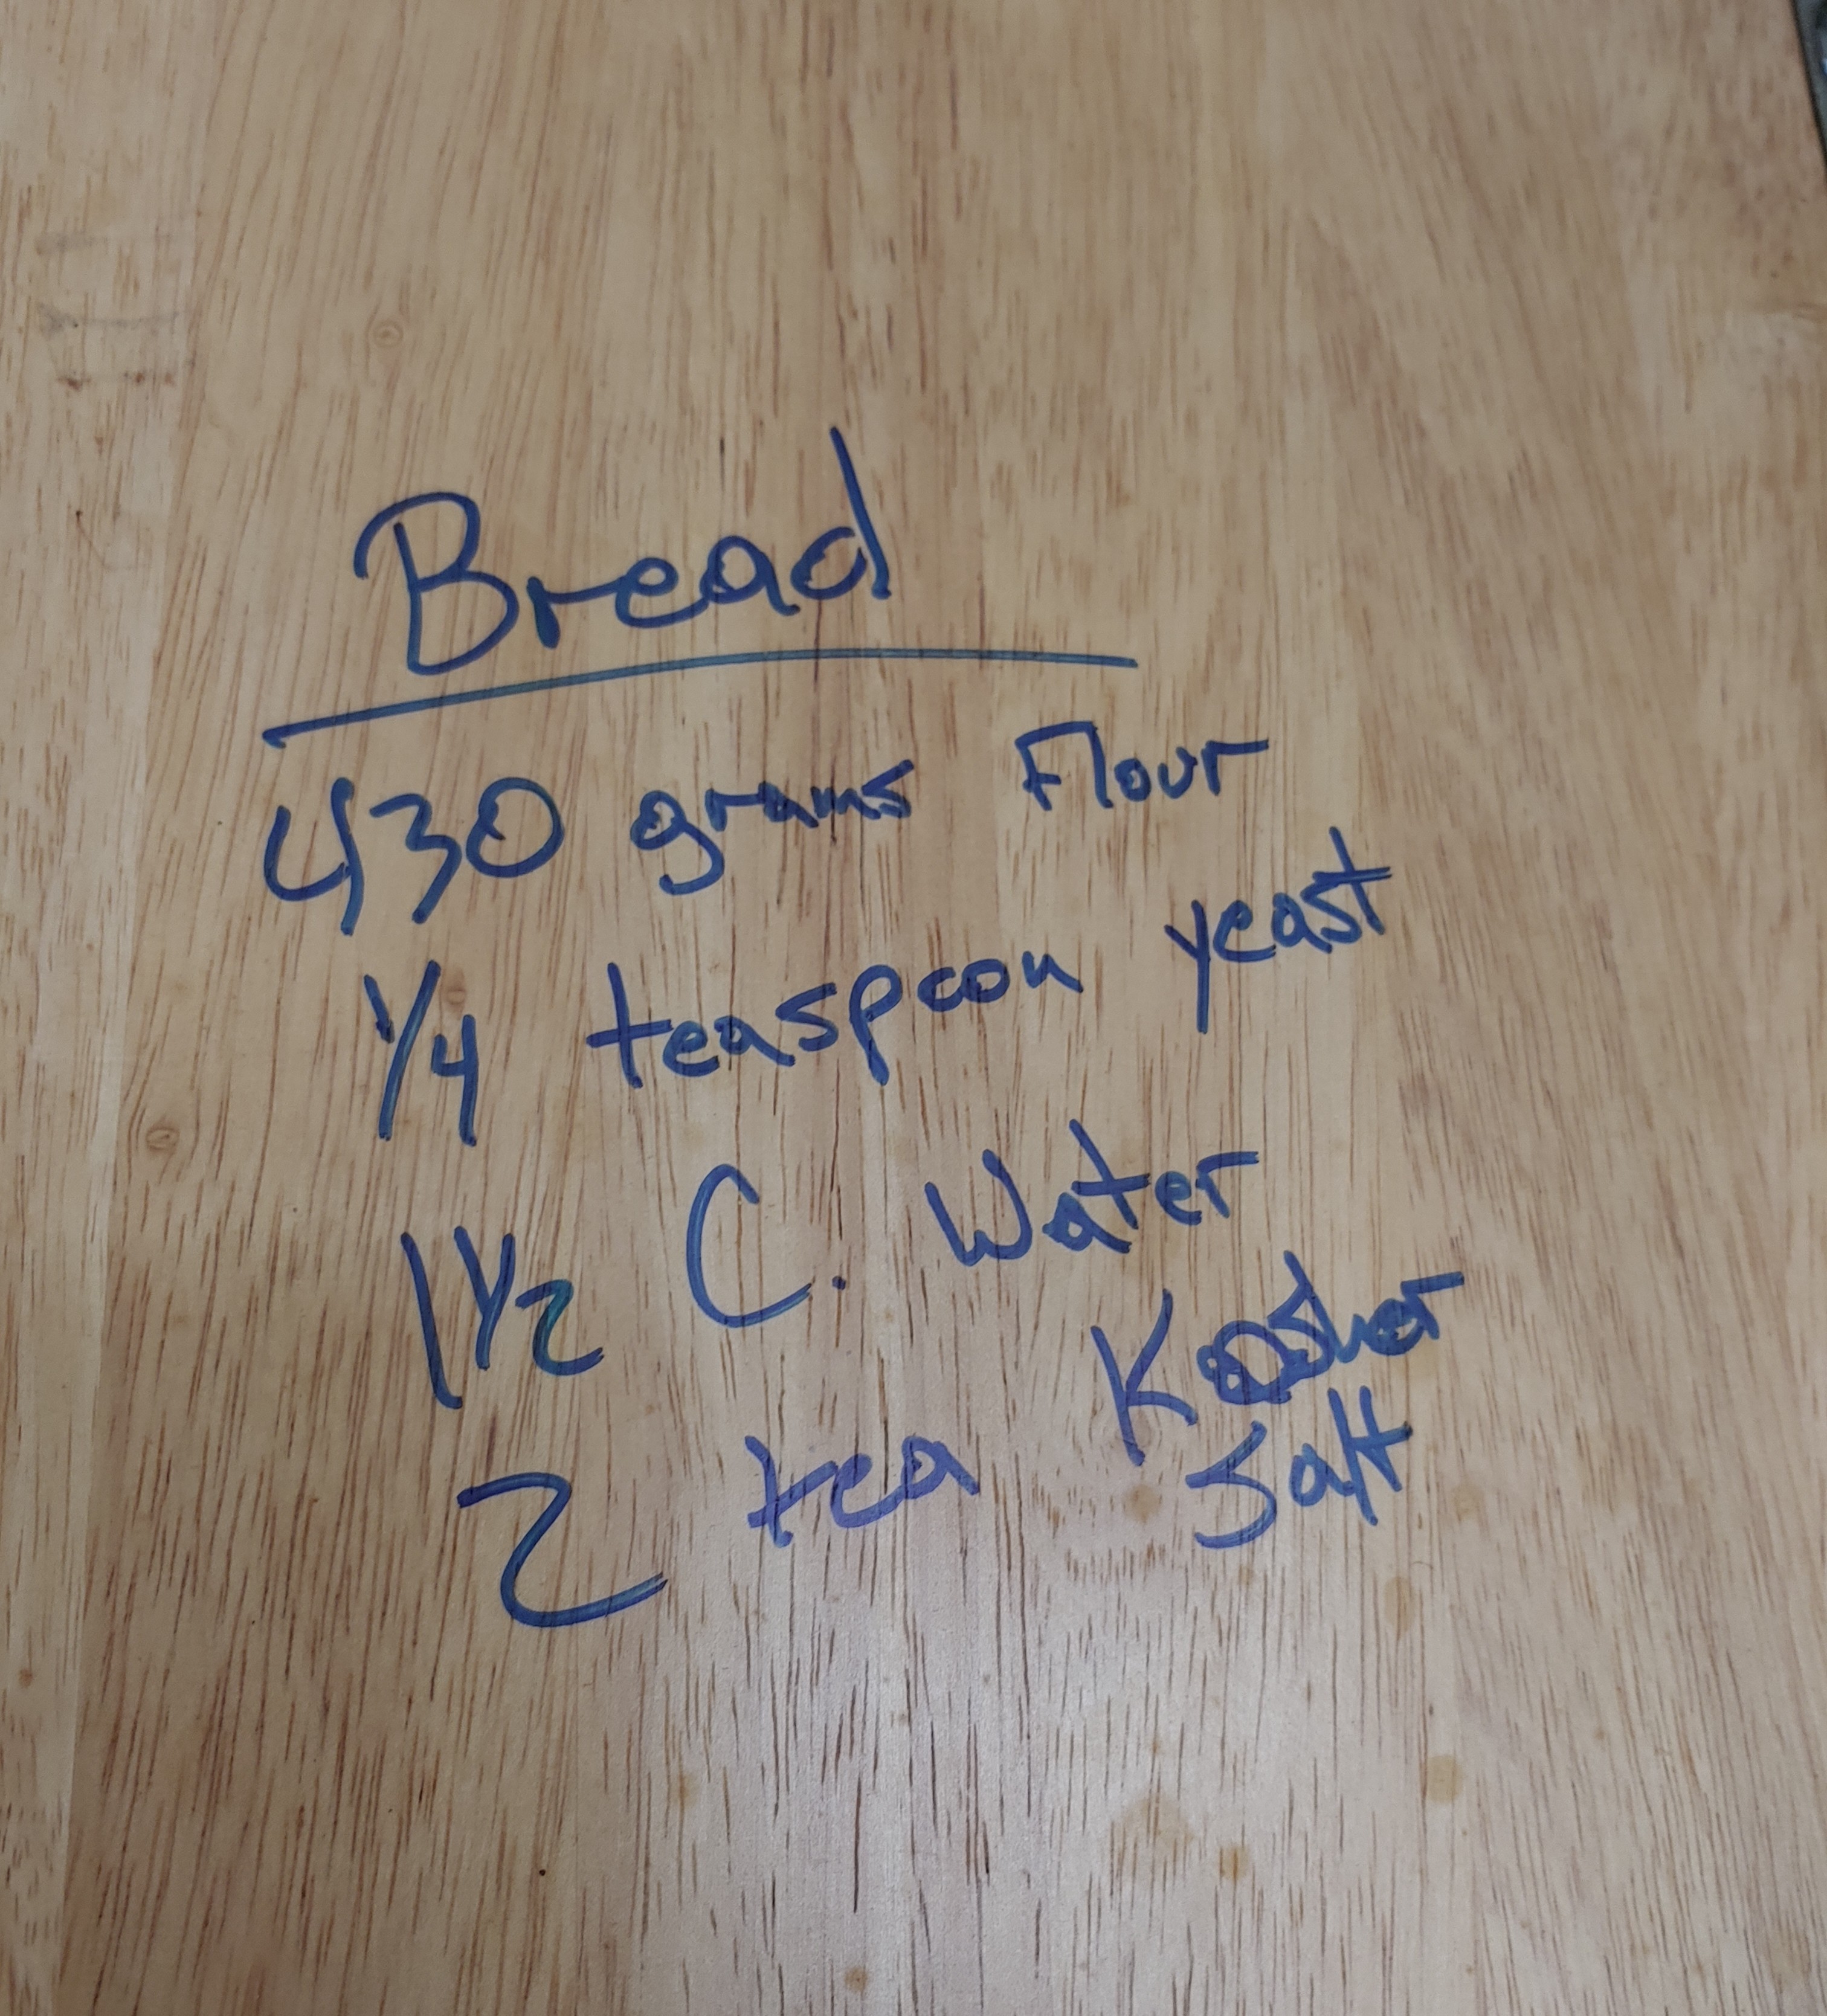 Bread
430 grams Flour
1/4 teaspoon yeast
1 1/2 C. Water
2 tea Kosher
Salt